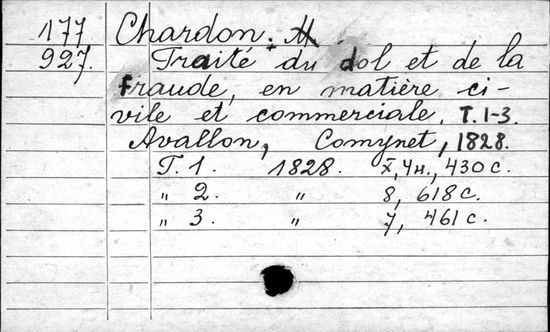 177
927.
Chardon.
Traité du dol et de la
fraude, en matière ci-
vile et commerciale. T. 1-3.
Avallon, Comynet, 1828.
T. 1. 1828. X, 4н., 430 c.
„ 2. „ 8, 618 c.
„ 3. „ 7, 461 c.